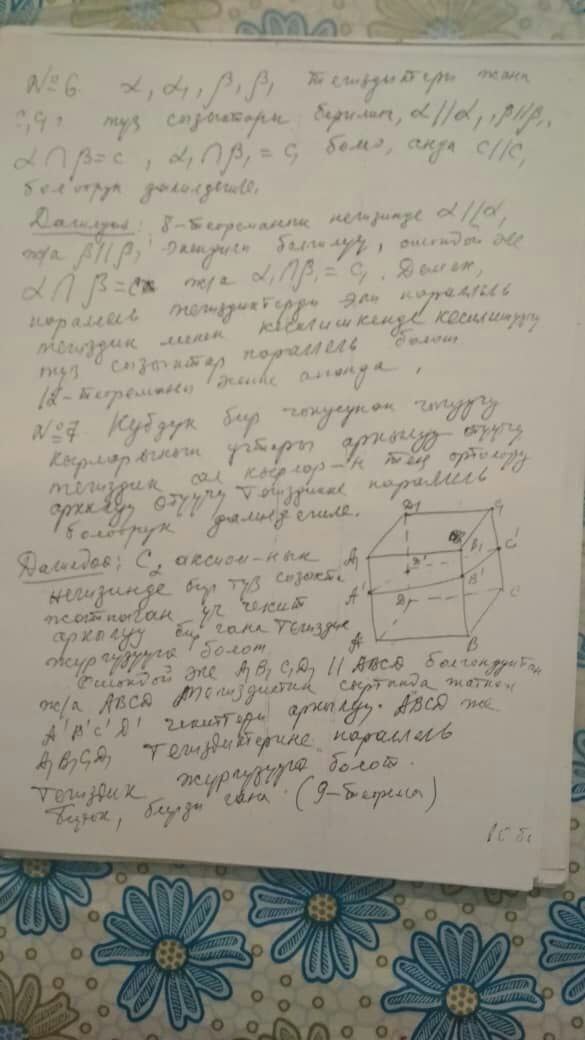 № 6. α, α₁, β, β₁ тегиздиктери жана
c, c₁ түз сызыктары берилип, α//α₁, β//β₁,
α ∩ β = c, α₁ ∩ β₁ = c₁ болсо, анда c//c₁
болоорун далилдегиле.
Далилдөө: 8-теореманын негизинде α//α₁
ж/а β//β₁ экендиги белгилүү, ошондой эле
α ∩ β = c ж/а α₁ ∩ β₁ = c₁. Демек,
параллель тегиздиктерди эки параллель
тегиздик менен кесилишкенде кесилишүүчү
түз сызыктар параллель болот
12-теореманы
№ 7. Кубдун бир чокусунан чыгуучу
кырларынын учтары аркылуу өтүүчү
тегиздик ал кырлар-н тең ортолору
аркылуу өтүүчү тегиздикке параллель
болоорун далилдегиле.
Далилдөө: C₂ аксиом-нын
негизинде бир түз сызыкта
жатпаган үч чекит
аркылуу бир гана тегиздик
жүргүзүүгө болот.
Ошондой эле A₁B₁C₁D₁ // ABCD болгондуктан
ж/а ABCD тегиздиктин сыртында жаткан
A'B'C'D' чекиттери аркылуу ABCD же
A₁B₁C₁D₁ тегиздиктерине параллель
тегиздик жүргүзүүгө болот.
бирди гана (9-теорема)
D₁ C₁
A₁ B₁ C'
D'
A' B'
D C
A B